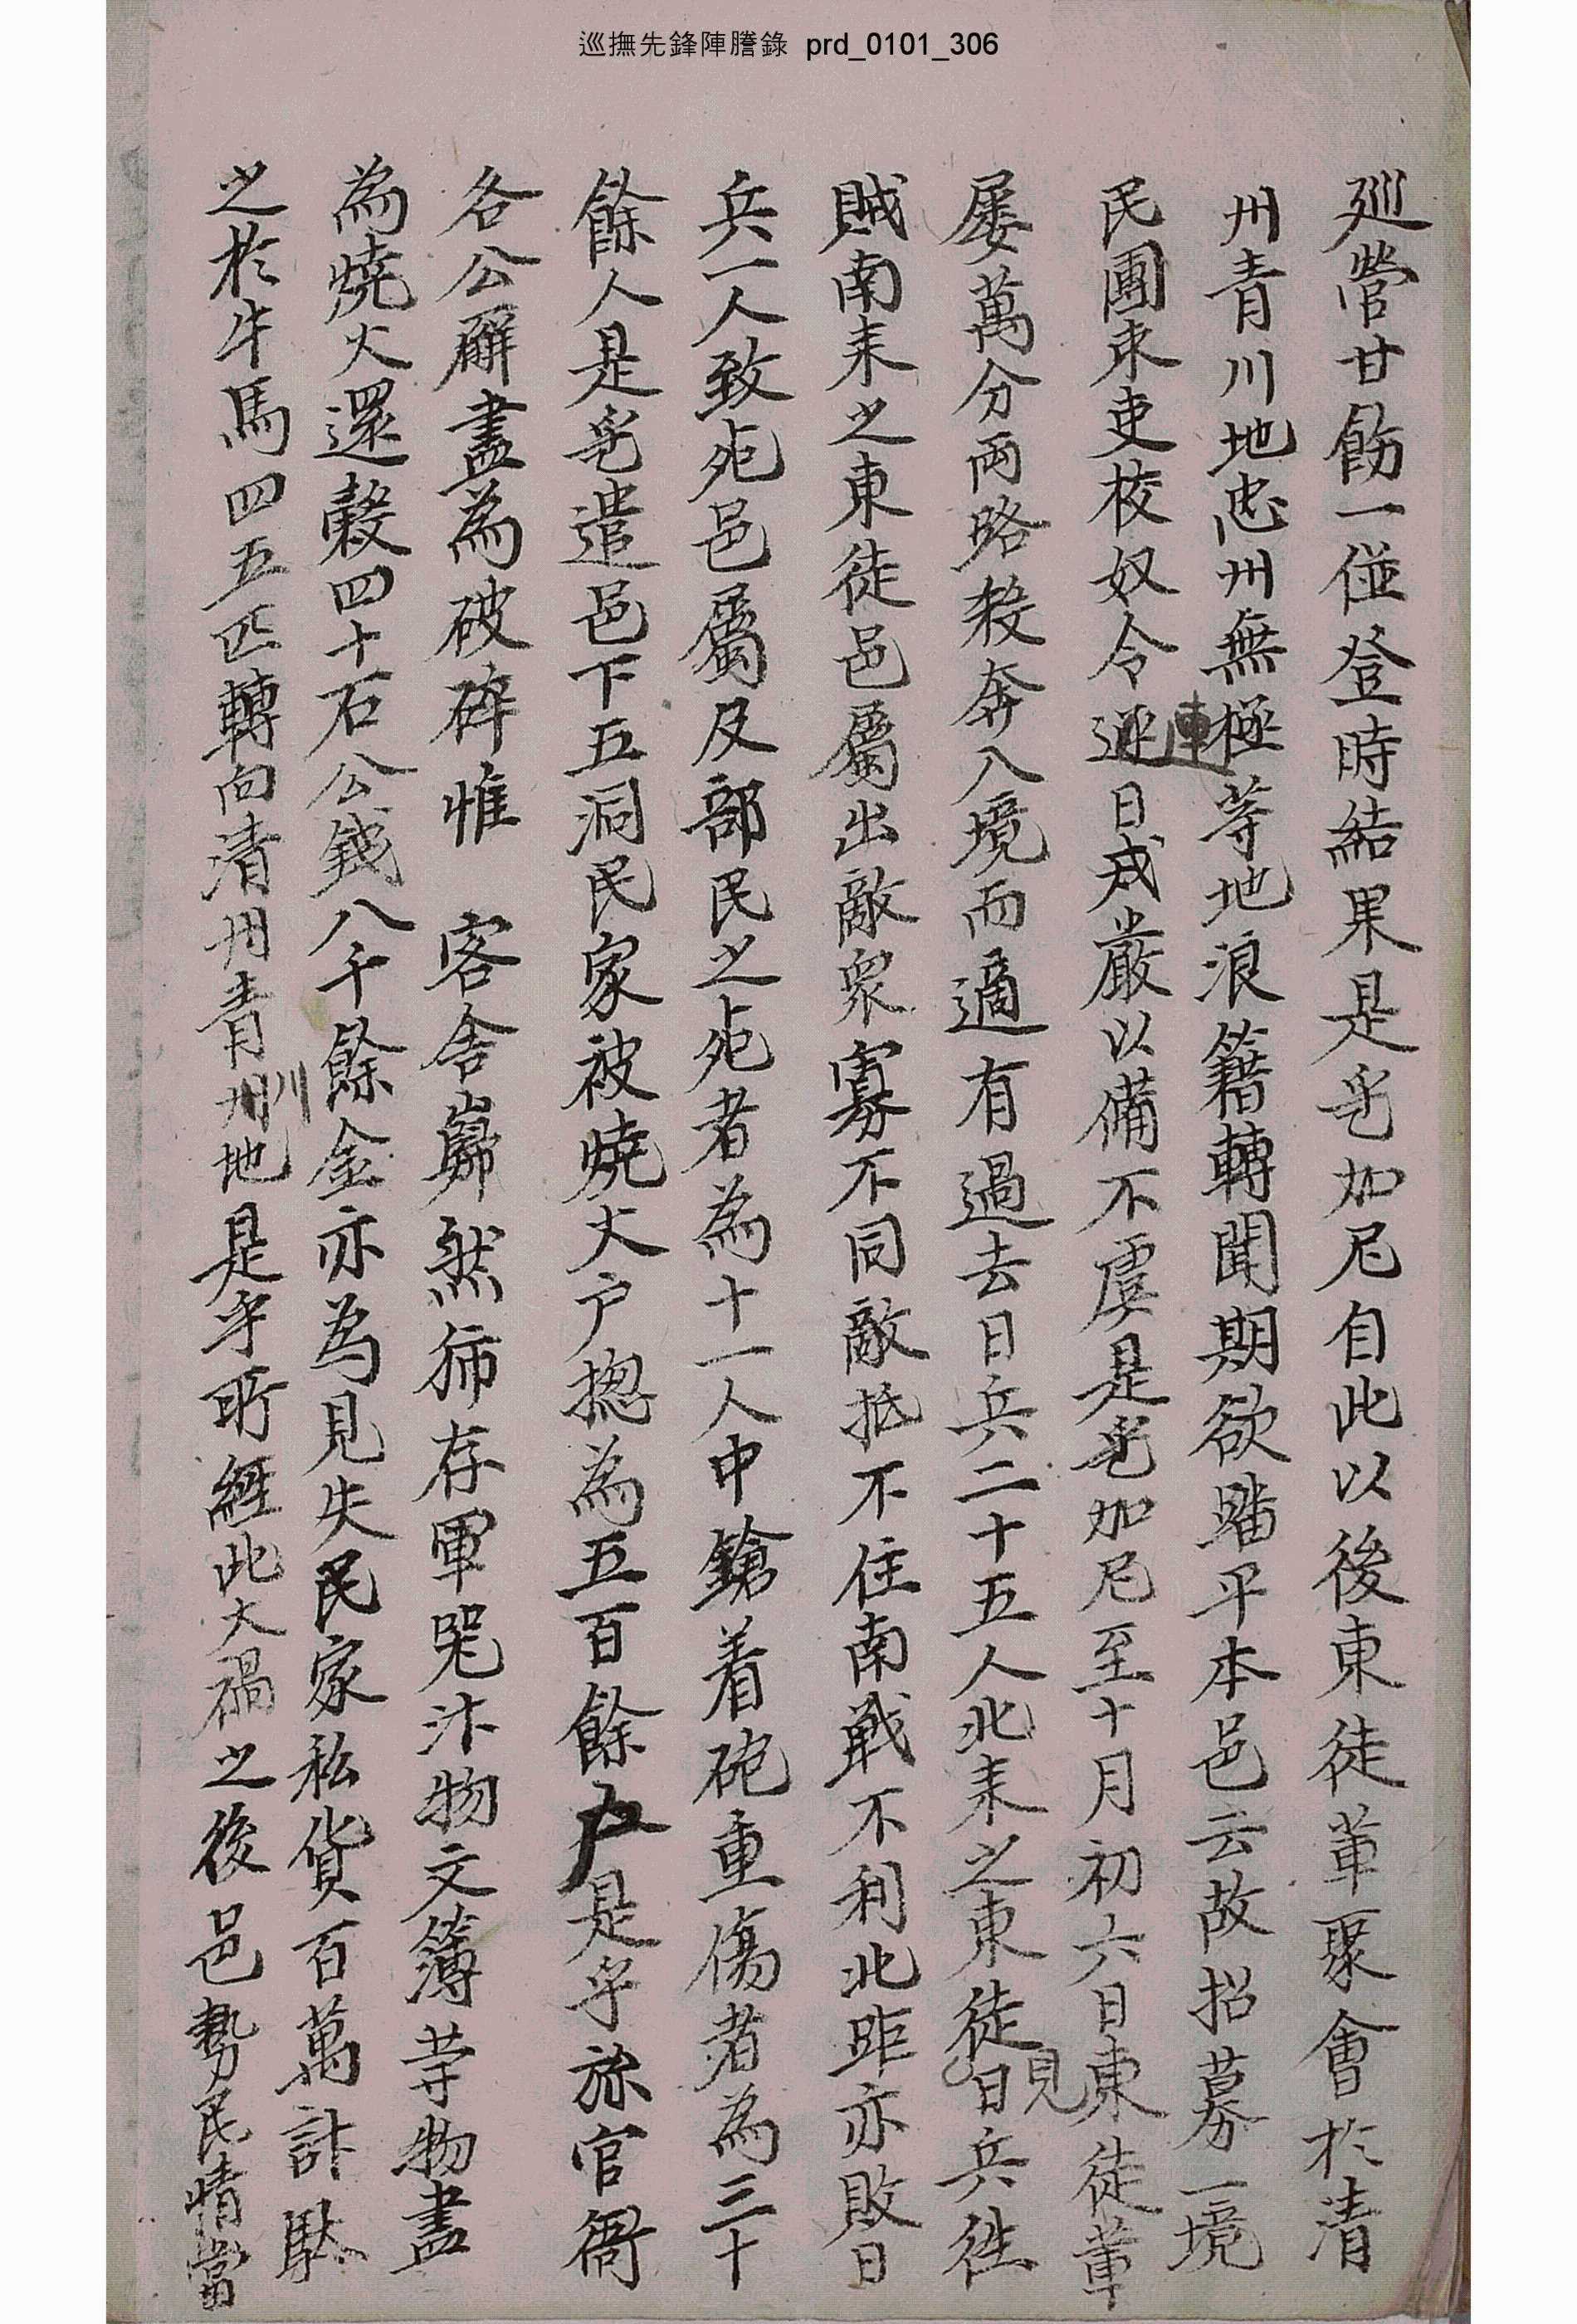 巡撫先鋒陣謄錄 prd_0101_306
廵營甘飭一偱登時結果是乎加尼自此以後東徒軰聚會於清
州青川地忠州無極等地浪籍轉聞期欲踏平本邑云故招募一境
民團束吏校奴令連逐日戎嚴以備不虞是乎加尼至十月初六日東徒軰
屡萬分兩路殺奔入境而適有過去日兵二十五人北来之東徒見日兵徃
賊南来之東徒邑屬出敵衆寡不同敵抵不住南戰不利北距亦敗日
兵一人致死邑屬及部民之死者為十一人中鎗着砲重傷者為三十
餘人是乎遣邑下五洞民家被燒大户揔為五百餘户是乎旀官衙
各公廨盡為破碎惟 客舍巋然獨存軍器汁物文簿等物盡
為燒火還穀四十石公錢八千餘金亦為見失民家私貨百萬計駄
之於牛馬四五匹轉向清州青川地是乎所經此大禍之後邑勢民情當